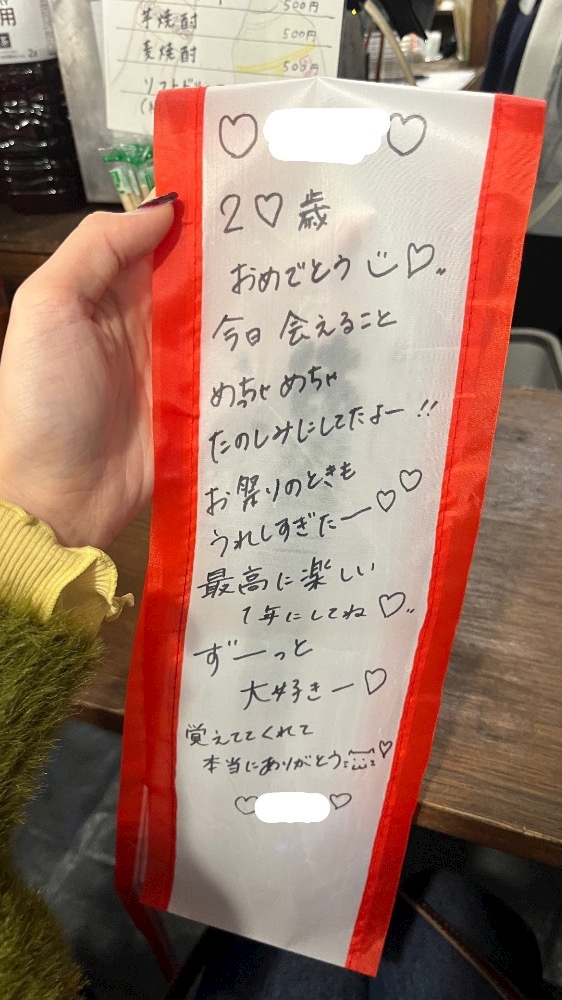 用
芋焼酎 500円
麦焼酎 500円
505円
♡ ♡
2♡歳
おめでとう♡
今日 会えること
めちゃめちゃ
たのしみにしてたよー!!
お祭りのときも
うれしすぎたー♡♡
最高に楽しい
1年にしてね♡
ずーっと
大好きー♡
覚えててくれて
本当にありがとう♡
♡ ♡